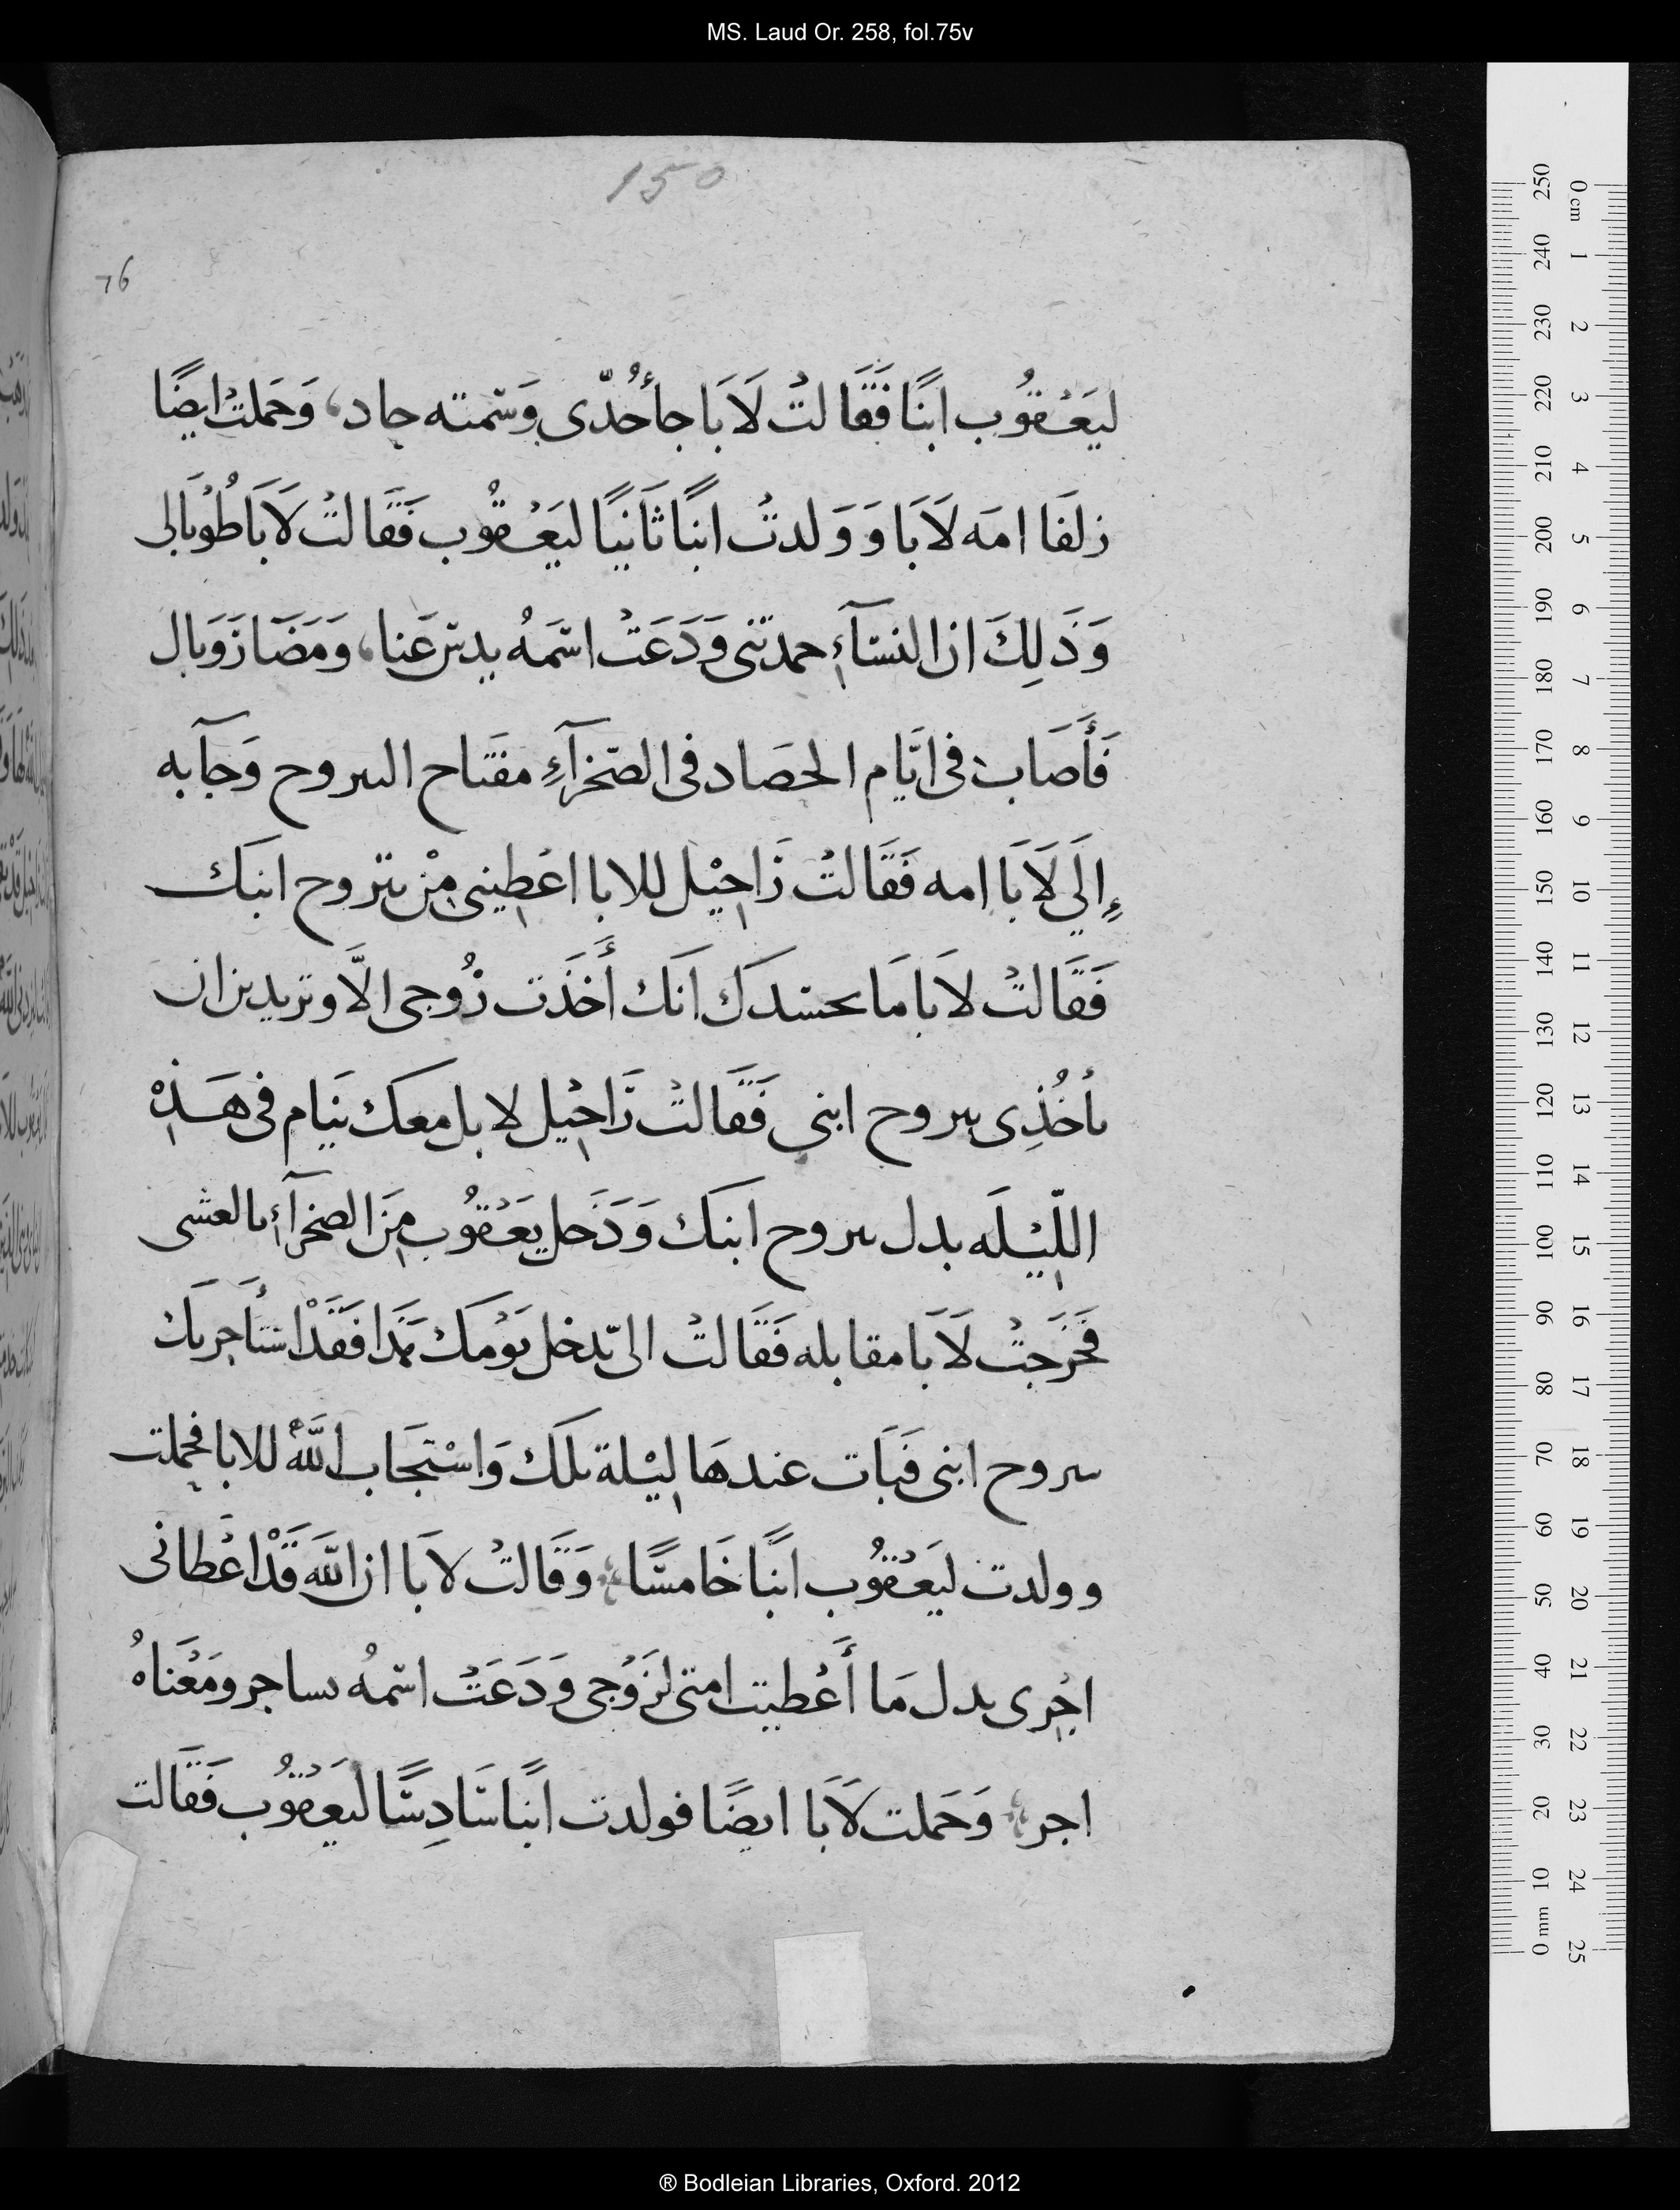 MS. Laud Or. 258, fol.75v
150
76
ليَعْقُوب ابنًا فَقَالتْ لَابَا جأحُدّى وَسَمته جاد، وَحَملتْ ايضًا
زلفَا امَه لَابَا وَوَلدتْ ابنًا ثَانيًا ليَعْقُوب فَقَالتْ لَابَا طُوْبَالى
وَذَلِكَ ان النسَآءِ حمدتنى وَدَعَتْ اسَمهُ يدترعَنا، وَمَضَا رَوَبال
فَأَصَابْ فى ايَّام الحصَاد فى الصَحْرآءِ مفَتاح اليبروح وَجآبه
إِلَي لَابَا امه فَقَالتْ رَاحِيْل للابا اعْطِينى مِنْ يبروح ابنَك
فَقَالتْ لابَا مَا حسدَك انَك أَخَذت زُوجى الَّا وتريدين ان
تأخُذِى يبروح ابنى فَقَالتْ رَاحِيْل لا بل معَك يَنام فى هَذِهْ
اللّيْلَه بدل يبروح ابنَك وَدَخَل يعَقُوب مِنَ الصَحْرآءِ بالعشى
فَخَرَجتْ لَابَا مقابله فَقَالتْ الى تدخل يَوْمَك هَذا فَقَدْ اسَتأجرتك
يبروح ابنى فبَات عندهَا ليْلة تلَك وَاسْتجَاب اللَّهُ للابا فحملت
وولدت ليَعْقُوب ابنًا خَامسًا، وَقَالتْ لابَا ان اللَّه قَدْ اعْطانى
اجرى بدل مَا أَعْطيت امتى لزَوْجى وَدَعَتْ اسَمهُ يساجر ومَعْناهُ
اجر، وَحَملت لَابَا ايضًا فولدت ابنًا سَادِسًا ليَعْقُوب فَقَالت
0 cm 1 2 3 4 5 6 7 8 9 10 11 12 13 14 15 16 17 18 19 20 21 22 23 24 25
250 240 230 220 210 200 190 180 170 160 150 140 130 120 110 100 90 80 70 60 50 40 30 20 10 0 mm
® Bodleian Libraries, Oxford. 2012